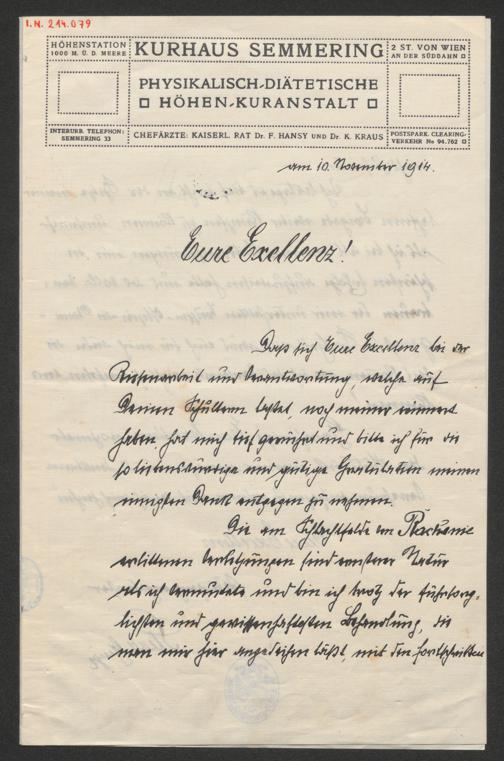 I.N. 214.079
HÖHENSTATION
1000 M. Ü. D. MEERE
KURHAUS SEMMERING
2 ST. VON WIEN
AN DER SÜDBAHN
PHYSIKALISCH-DIÄTETISCHE
HÖHEN-KURANSTALT
INTERURB. TELEPHON:
SEMMERING 33
CHEFÄRZTE: KAISERL. RAT Dr. F. HANSY UND Dr. K. KRAUS
POSTSPARK. CLEARING-
VERKEHR No 94.762
am 10. November 1914.
Eure Exellenz!
Daß sich Eure Excellenz bei der
Riesenarbeit und Verantwortung, welche auf
Deinen Schultern lastet, noch meiner erinnert
haben hat mich tief gerührt und bitte ich für die
so liebenswürdige und gütige Gratulation meinen
innigsten Dank entgegen zu nehmen.
Die am Schlachtfelde von
erlittenen Verletzungen sind ernsterer Natur
als ich vermutete und bin ich trotz der fürsorg-
lichsten und gewissenhaftesten Behandlung, die
man mir hier angedeihen läßt, mit den Fortschritten